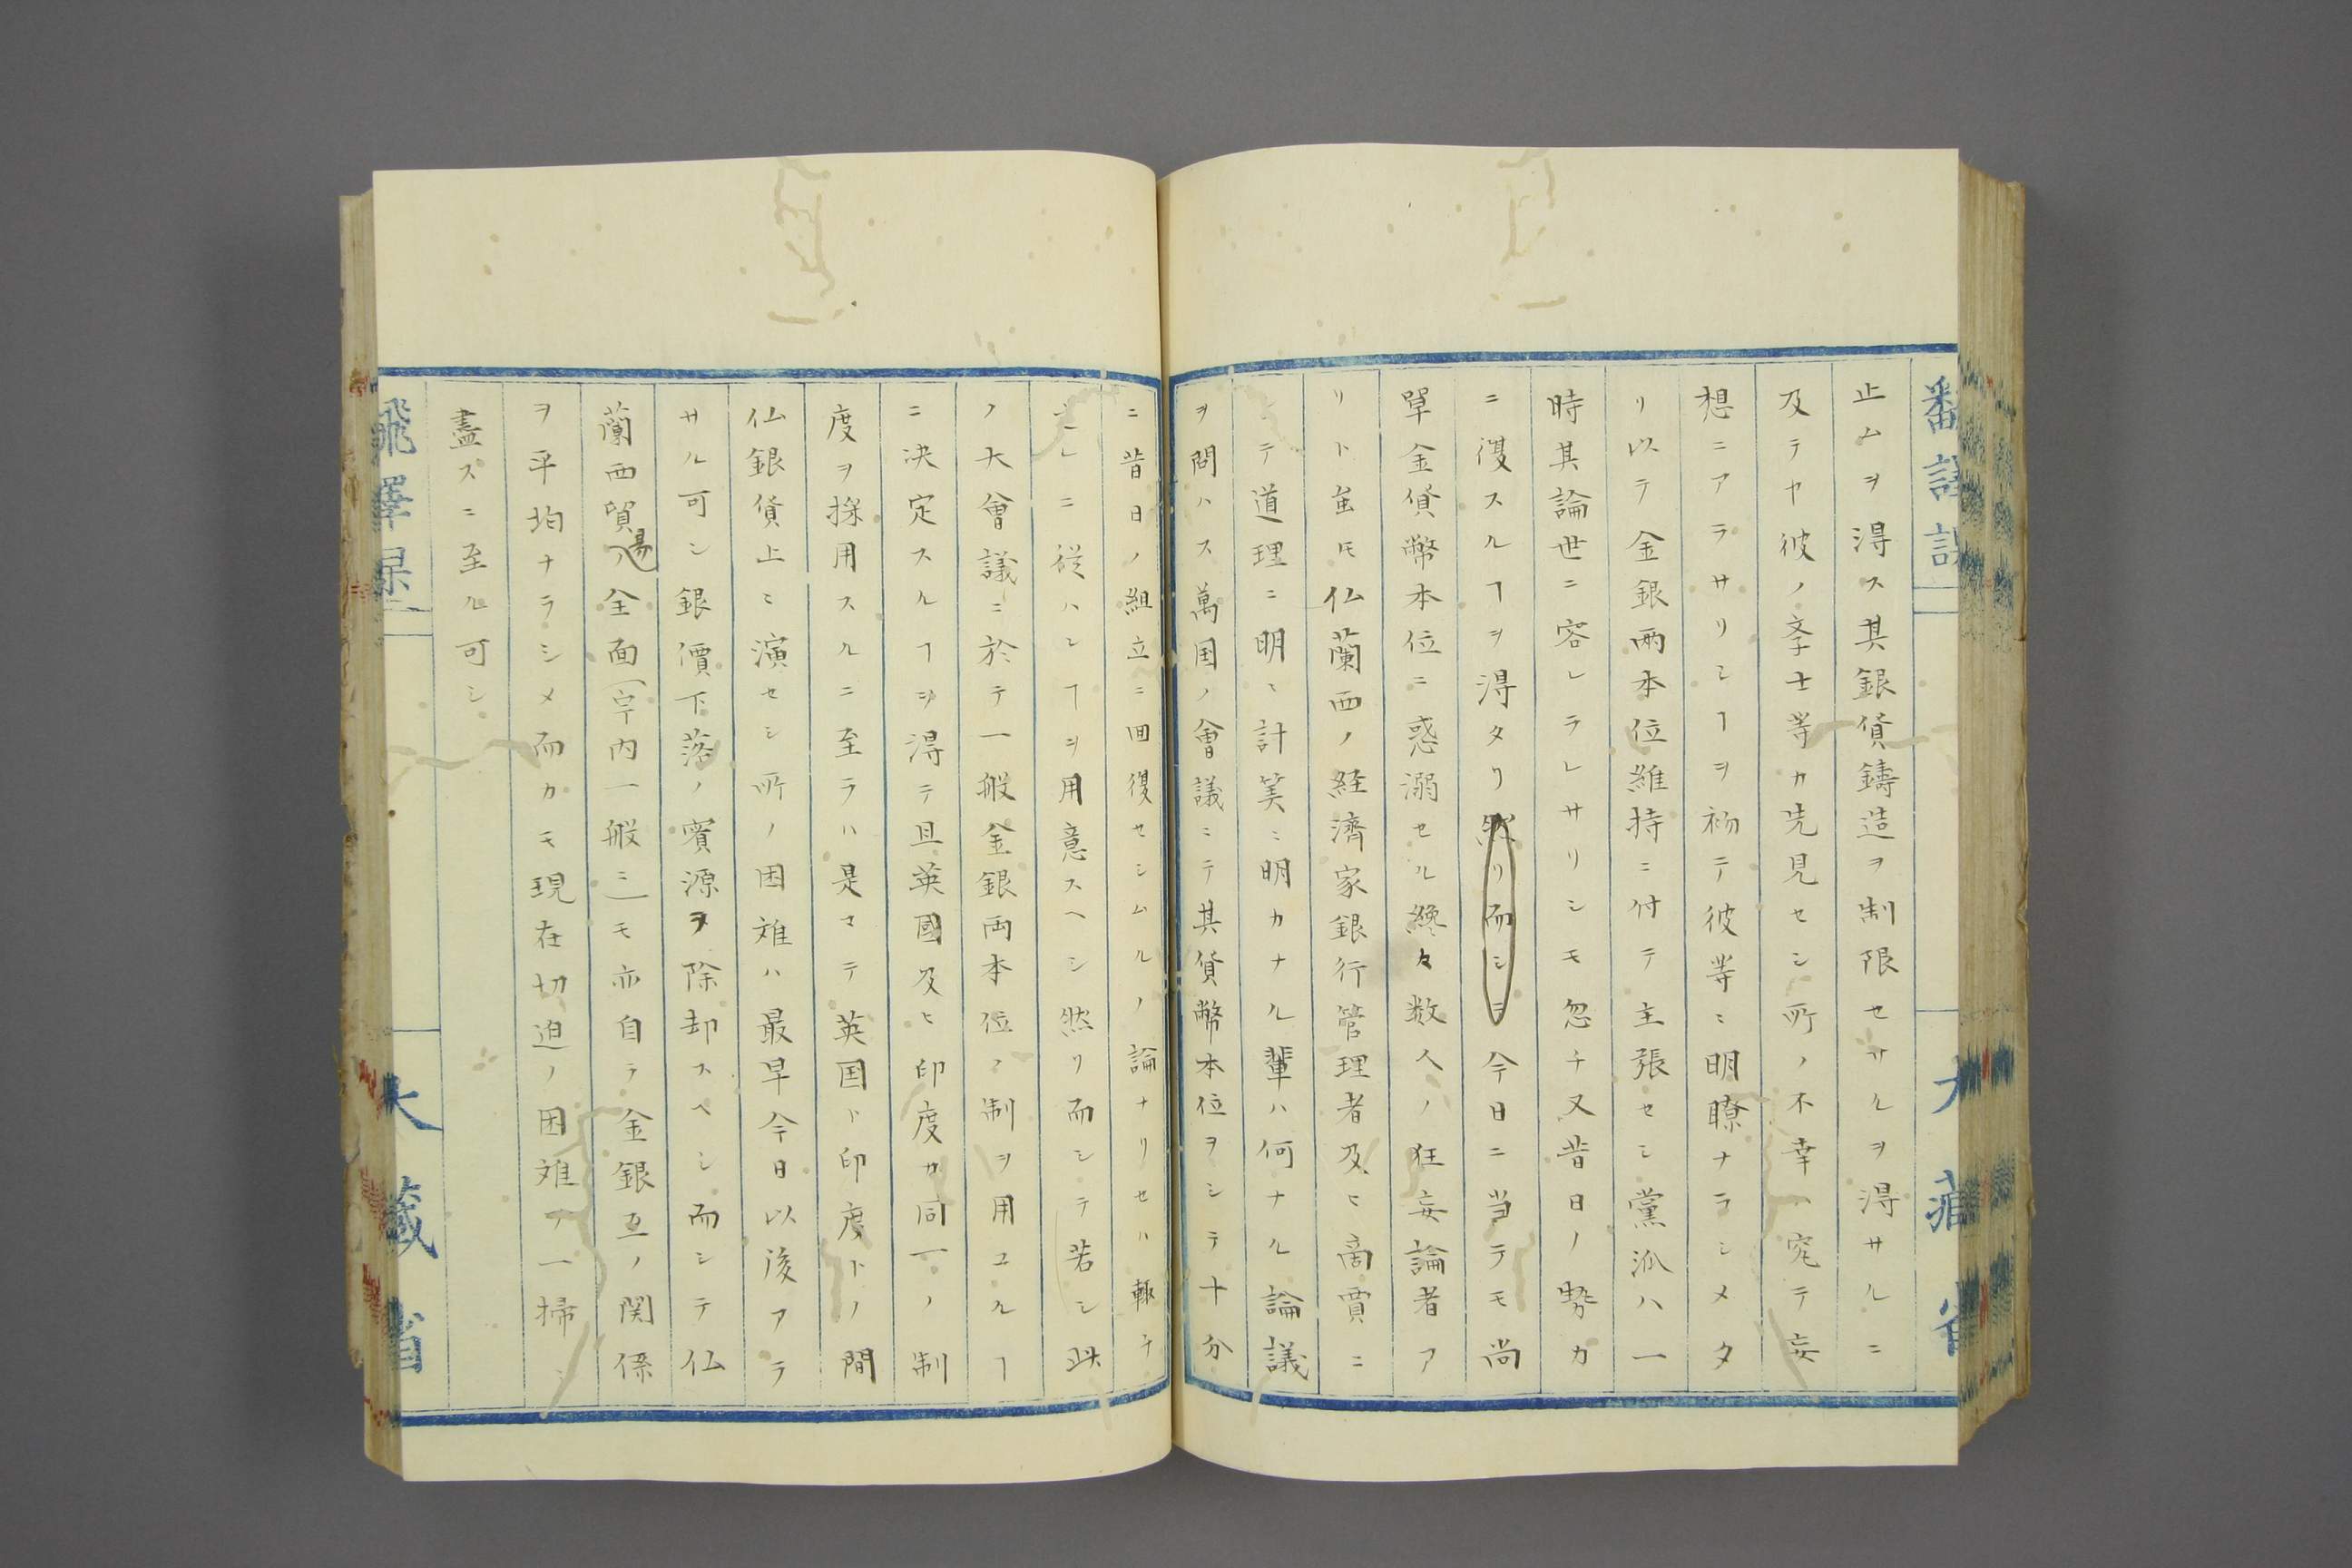 止ムヲ得ス其銀貨鋳造ヲ制限セサルヲ得サルニ
及テヤ彼ノ学士等カ先見セシ所ノ不幸ハ宛テ妄
想ニアラサリシヿヲ初テ彼等ニ明瞭ナラシメタ
リ以テ金銀両本位維持ニ付テ主張セシ黨派ハ一
時其論世ニ容レラレサリシモ忽チ又昔日ノ勢カ
ニ復スルヿヲ得タリ然リ而シテ今日ニ当テモ尚
単金貨幣本位ニ惑溺セル纔々数人ノ狂妄論者ア
リト虽𪜈仏蘭西ノ経済家銀行管理者及ヒ商賈ニ
シテ道理ニ明ニ計算ニ明カナル輩ハ何ナル論議
ヲ問ハス萬国ノ會議ニテ其貨幣本位ヲシテ十分
ニ昔日ノ組立ニ回復セシムルノ論ナリセハ輙チ
之レニ従ハンヿヲ用意スヘシ然リ而シテ若シ此
ノ大會議ニ於テ一般金銀両本位ノ制ヲ用ユルヿ
ニ决定スルヿヲ得テ且英國及ヒ印度カ同一ノ制
度ヲ採用スルニ至ラハ是マテ英国ト印度トノ間
仏銀貨上ニ演セシ所ノ困難ハ最早今日以後アラ
サル可シ銀價下落ノ賓源ヲ除却スヘシ而シテ仏
蘭西貿易全面(宇内一般ニ)モ亦自ラ金銀互ノ関係
ヲ平均ナラシメ而カモ現在切迫ノ困難ヲ一掃シ
盡スニ至ル可シ
番訳課
大蔵省
飛譯
大蔵省